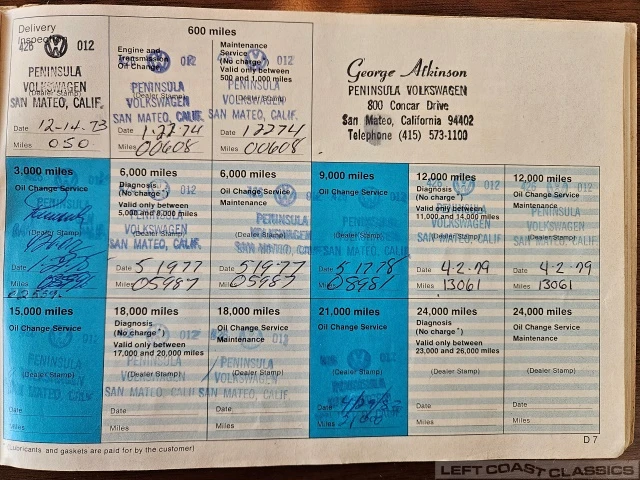 Delivery
Inspection
426 012
PENINSULA
VOLKSWAGEN
(Dealer Stamp)
SAN MATEO, CALIF.
Date 12-14-73
Miles 050
600 miles
Engine and
Transmission
Oil Change
PENINSULA
VOLKSWAGEN
(Dealer Stamp)
SAN MATEO, CALIF.
Date 1-22-74
Miles 00608
Maintenance
Service
(No charge*)
Valid only between
500 and 1,000 miles
012
PENINSULA
VOLKSWAGEN
(Dealer Stamp)
SAN MATEO, CALIF.
Date 12274
Miles 00608
George Atkinson
PENINSULA VOLKSWAGEN
800 Concar Drive
San Mateo, California 94402
Telephone (415) 573-1100
3,000 miles
Oil Change Service
(Dealer Stamp)
Date
Miles
6,000 miles
Diagnosis
(No charge*)
Valid only between
5,000 and 8,000 miles
PENINSULA
VOLKSWAGEN
(Dealer Stamp)
SAN MATEO, CALIF.
Date 5 1977
Miles 05987
6,000 miles
Oil Change Service
Maintenance
012
PENINSULA
VOLKSWAGEN
(Dealer Stamp)
SAN MATEO, CALIF.
Date 519-77
Miles 05987
9,000 miles
Oil Change Service
PENINSULA
VOLKSWAGEN
(Dealer Stamp)
SAN MATEO, CALIF.
Date 5 1778
Miles 08981
12,000 miles
Diagnosis
(No charge*)
Valid only between
11,000 and 14,000 miles
426 012
PENINSULA
VOLKSWAGEN
(Dealer Stamp)
SAN MATEO, CALIF.
Date 4-2-79
Miles 13061
12,000 miles
Oil Change Service
Maintenance
426 012
PENINSULA
VOLKSWAGEN
(Dealer Stamp)
SAN MATEO, CALIF.
Date 4-2-79
Miles 13061
15,000 miles
Oil Change Service
012
PENINSULA
VOLKSWAGEN
(Dealer Stamp)
SAN MATEO, CALIF.
Date
Miles
18,000 miles
Diagnosis
(No charge*)
Valid only between
17,000 and 20,000 miles
PENINSULA
VOLKSWAGEN
(Dealer Stamp)
SAN MATEO, CALIF.
Date
Miles
18,000 miles
Oil Change Service
Maintenance
012
PENINSULA
VOLKSWAGEN
(Dealer Stamp)
SAN MATEO, CALIF.
Date
Miles
21,000 miles
Oil Change Service
426 012
PENINSULA
VOLKSWAGEN
(Dealer Stamp)
SAN MATEO, CALIF.
Date
Miles
24,000 miles
Diagnosis
(No charge*)
Valid only between
23,000 and 26,000 miles
(Dealer Stamp)
Date
Miles
24,000 miles
Oil Change Service
Maintenance
(Dealer Stamp)
Date
Miles
(Lubricants and gaskets are paid for by the customer)
D 7
LEFT COAST CLASSICS